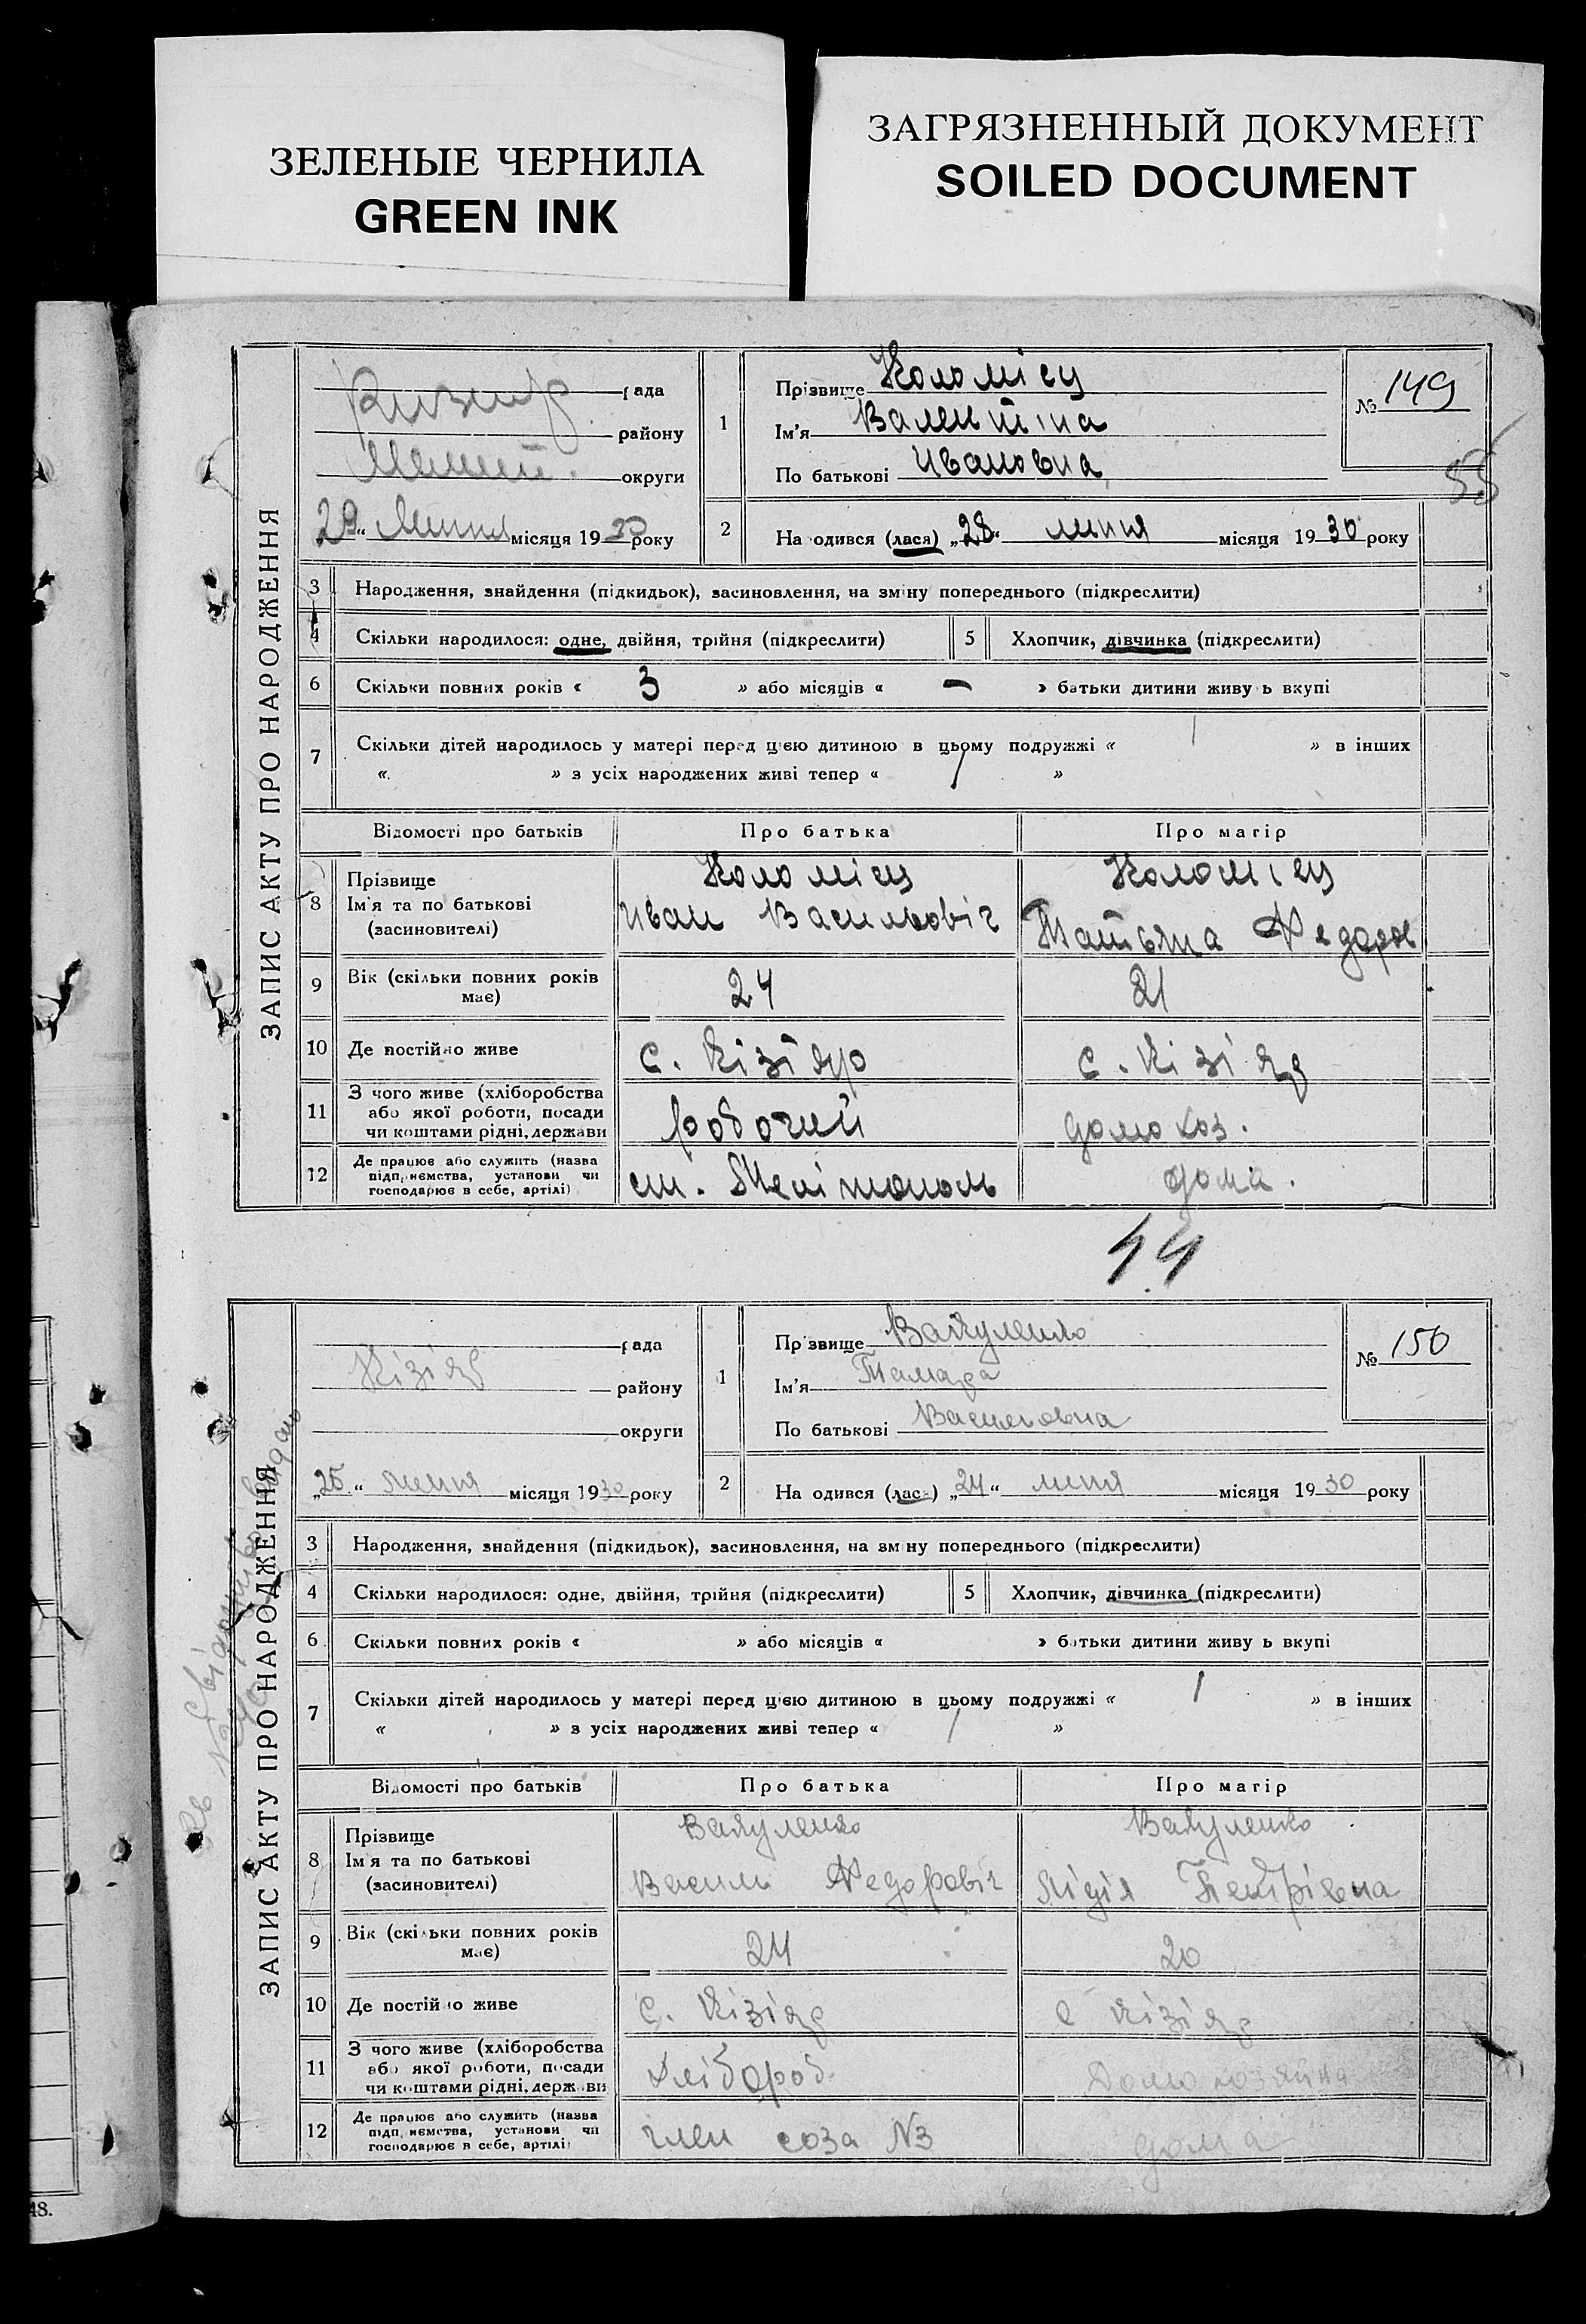 ЗЕЛЕНЫЕ ЧЕРНИЛА
GREEN INK
ЗАГРЯЗНЕННЫЙ ДОКУМЕНТ
SOILED DOCUMENT
ЗАПИС АКТУ ПРО НАРОДЖЕННЯ
рада
району
округи
„29“ липня місяця 1930 року
1
Прізвище Коломієц
Ім'я Валентіна
По батькові Ивановна
№ 149
55
2
Народився (лася) „28“ липня місяця 1930 року
3 Народження, знайдення (підкидьок), засиновлення, на зміну попереднього (підкреслити)
4 Скільки народилося: одне, двійня, трійня (підкреслити)
5 Хлопчик, дівчинка (підкреслити)
6 Скільки повних років « 3 » або місяців « – » батьки дитини живуть вкупі
7 Скільки дітей народилось у матері перед цією дитиною в цьому подружжі « 1 » в інших
« » з усіх народжених живі тепер « 1 »
Відомості про батьків Про батька Про матір
8 Прізвище
Ім'я та по батькові
(засиновителі)
Коломієц
Иван Васильовіч
Коломієц
Татьяна Федоров
9 Вік (скільки повних років має) 24 21
10 Де постійно живе с. Кізіяр с. Кізіяр
11 З чого живе (хліборобства
або якої роботи, посади
чи коштами рідні, держави
робочий домохоз.
12 Де працює або служить (назва
підприємства, установи чи
господарює в себе, артілі)
ст. Мелітополь дома.
44
ЗАПИС АКТУ ПРО НАРОДЖЕННЯ
рада
Кізіяр району
округи
„25“ липня місяця 1930 року
1
Прізвище Вакуленко
Ім'я Тамара
По батькові Васильовна
№ 150
2
Народився (лася) „24“ липня місяця 1930 року
3 Народження, знайдення (підкидьок), засиновлення, на зміну попереднього (підкреслити)
4 Скільки народилося: одне, двійня, трійня (підкреслити)
5 Хлопчик, дівчинка (підкреслити)
6 Скільки повних років « » або місяців « » батьки дитини живуть вкупі
7 Скільки дітей народилось у матері перед цією дитиною в цьому подружжі « 1 » в інших
« » з усіх народжених живі тепер « 1 »
Відомості про батьків Про батька Про матір
8 Прізвище
Ім'я та по батькові
(засиновителі)
Вакуленко
Васили Федоровіч
Вакуленко
Лідія Петрівна
9 Вік (скільки повних років має) 24 20
10 Де постійно живе с. Кізіяр с Кізіяр
11 З чого живе (хліборобства
або якої роботи, посади
чи коштами рідні, держави
хлібороб. Домохозяйка
12 Де працює або служить (назва
підприємства, установи чи
господарює в себе, артілі)
член соза №3 дома
48.